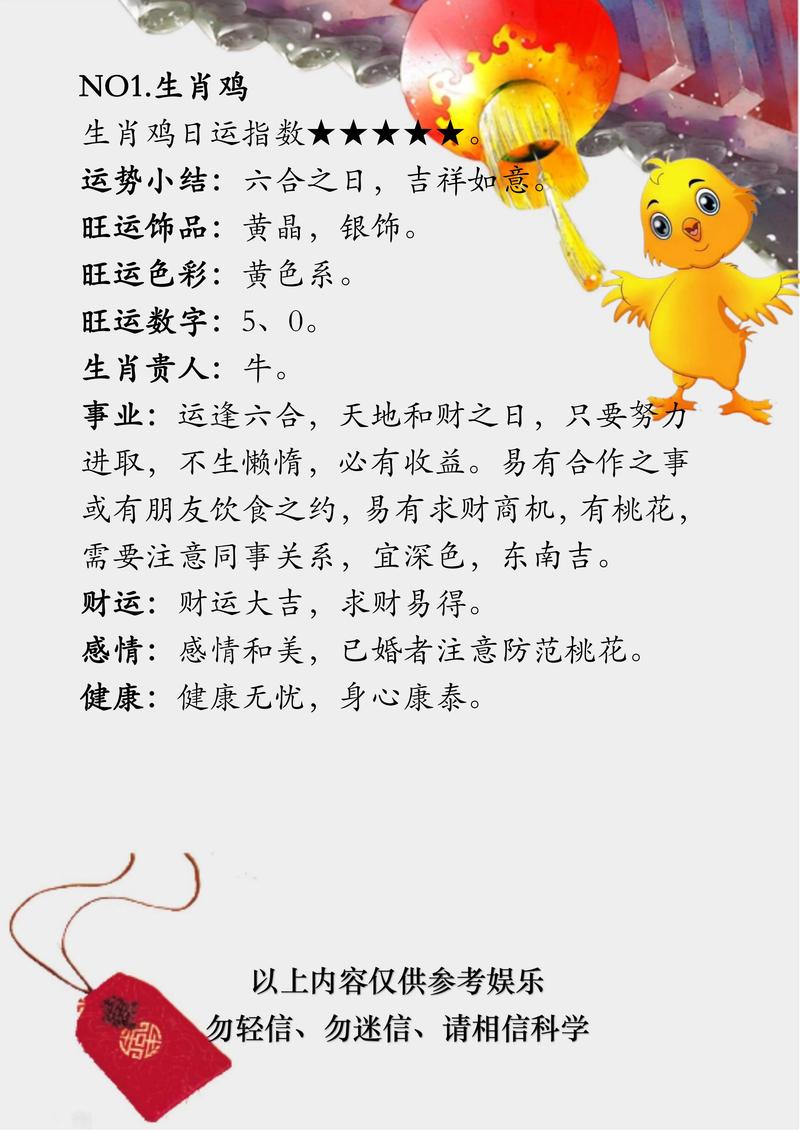 NO1.生肖鸡
生肖鸡日运指数★★★★★。
运势小结：六合之日，吉祥如意。
旺运饰品：黄晶，银饰。
旺运色彩：黄色系。
旺运数字：5、0。
生肖贵人：牛。
事业：运逢六合，天地和财之日，只要努力
进取，不生懒惰，必有收益。易有合作之事
或有朋友饮食之约，易有求财商机，有桃花，
需要注意同事关系，宜深色，东南吉。
财运：财运大吉，求财易得。
感情：感情和美，已婚者注意防范桃花。
健康：健康无忧，身心康泰。
以上内容仅供参考娱乐
勿轻信、勿迷信、请相信科学